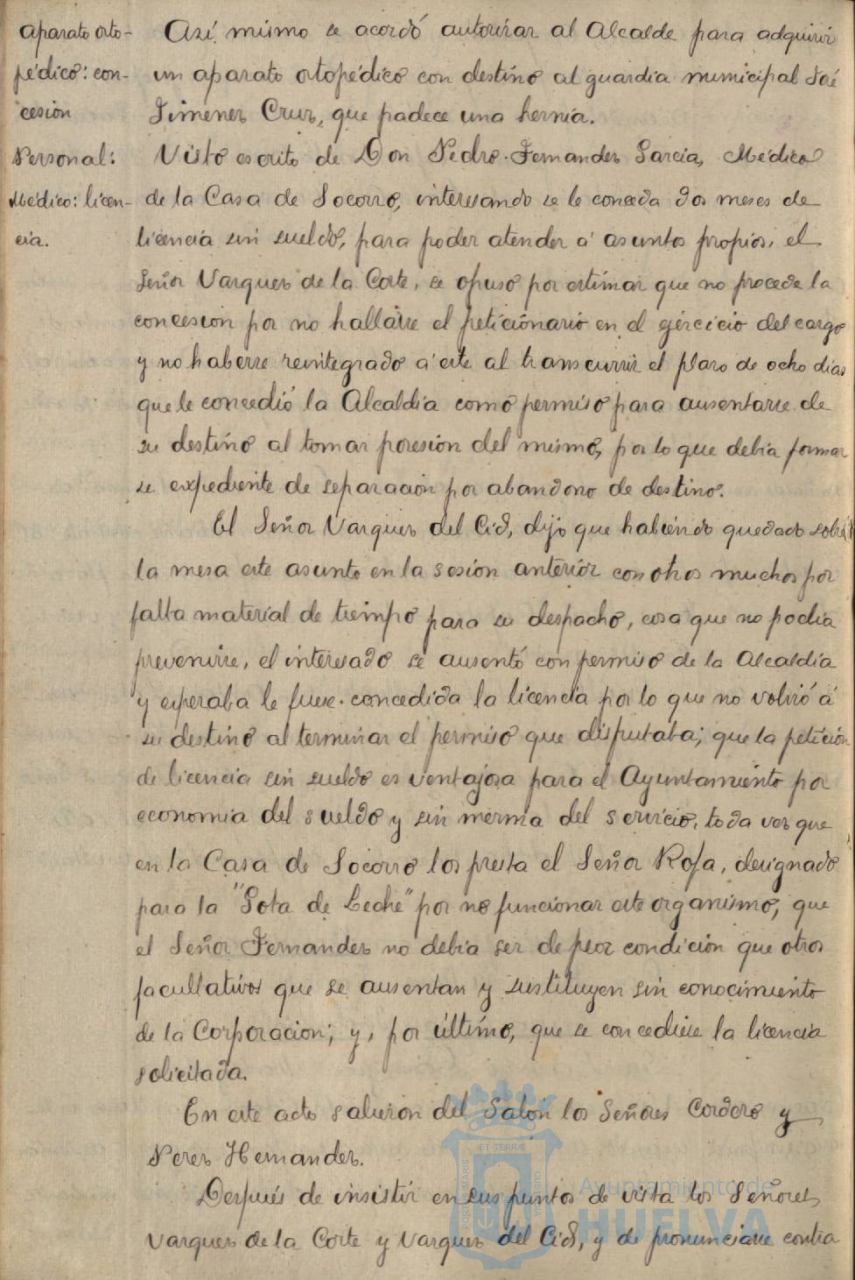 aparato orto-
pédico: con-
cesión
Así mismo se acordó autorizar al Alcalde para adquirir
un aparato ortopédico con destino al guardia municipal José
Jimenez Cruz, que padece una hernia.
Personal:
Médico: licen-
cia.
Visto escrito de Don Pedro Fernandez Garcia, Médico
de la Casa de Socorro, interesando se le conceda dos meses de
licencia sin sueldo, para poder atender á asuntos propios, el
Señor Vazquez de la Corte, se opuso por estimar que no procede la
concesion por no hallarse el peticionario en el ejercicio del cargo
y no haberse reintegrado á este al transcurrir el plazo de ocho dias
que le concedió la Alcaldía como permiso para ausentarse de
su destino al tomar posesion del mismo, por lo que debia formar
se expediente de separación por abandono de destino.
El Señor Vazquez del Cid, dijo que habiendo quedado sobre
la mesa este asunto en la sesion anterior con otros muchos por
falta material de tiempo para su despacho, cosa que no podía
prevenirse, el interesado se ausentó con permiso de la Alcaldía
y esperaba le fuese concedida la licencia por lo que no volvió á
su destino al terminar el permiso que disfrutaba; que la petición
de licencia sin sueldo es ventajosa para el Ayuntamiento por
economía del sueldo y sin merma del servicio, toda vez que
en la Casa de Socorro los presta el Señor Rofa, designado
para la "Gota de Leche" por no funcionar este organismo, que
el Señor Fernandez no debia ser de peor condición que otros
facultativos que se ausentan y sustituyen sin conocimiento
de la Corporacion; y, por último, que se concediese la licencia
solicitada.
En este acto salieron del Salón los Señores Cordero y
Perez Hernandez.
Después de insistir en sus puntos de vista los Señores
Vazquez de la Corte y Vazquez del Cid, y de pronunciarse contra
Ayuntamiento de
HUELVA